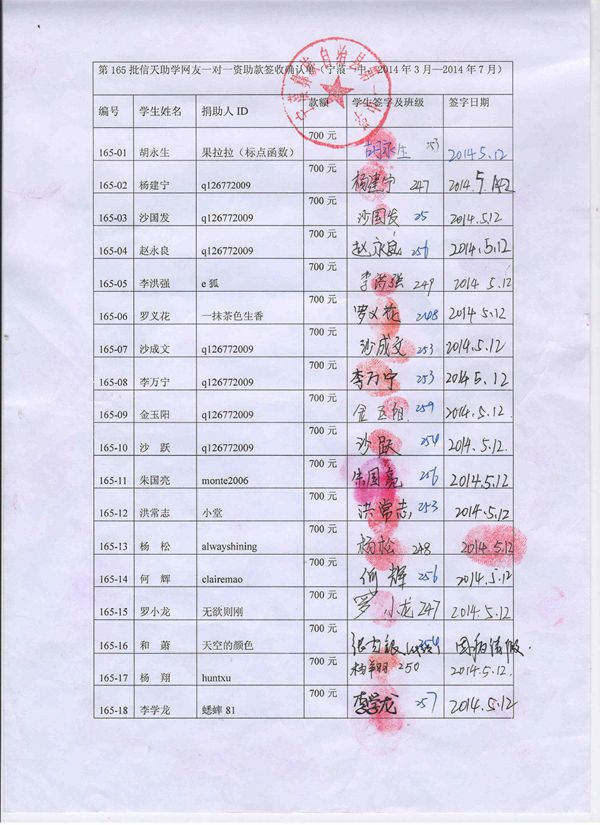 第 165 批信天助学网友一对一资助款签收确认单（宁蒗一中，2014 年 3 月—2014 年 7 月）
编号 学生姓名 捐助人 ID 款额 学生签字及班级 签字日期
165-01 胡永生 果拉拉（标点函数） 700 元 胡永生 253 2014.5.12
165-02 杨建宁 q126772009 700 元 杨建宁 247 2014.5.12
165-03 沙国发 q126772009 700 元 沙国发 25 2014.5.12
165-04 赵永良 q126772009 700 元 赵永良 256 2014.5.12
165-05 李洪强 e 狐 700 元 李洪强 249 2014.5.12
165-06 罗义花 一抹茶色生香 700 元 罗义花 2014.5.12
165-07 沙成文 q126772009 700 元 沙成文 253 2014.5.12
165-08 李万宁 q126772009 700 元 李万宁 253 2014.5.12
165-09 金玉阳 q126772009 700 元 金玉阳 259 2014.5.12.
165-10 沙 跃 q126772009 700 元 沙跃 254 2014.5.12.
165-11 朱国亮 monte2006 700 元 朱国亮 256 2014.5.12
165-12 洪常志 小堂 700 元 洪常志 253 2014.5.12.
165-13 杨 松 alwayshining 700 元 杨松 248 2014.5.12
165-14 何 辉 clairemao 700 元 何辉 256 2014.5.12
165-15 罗小龙 无欲则刚 700 元 罗小龙 247 2014.5.12
165-16 和 萧 天空的颜色 700 元 254
165-17 杨 翔 huntxu 700 元 杨翔 250 2014.5.12.
165-18 李学龙 蟋蟀 81 700 元 李学龙 257 2014.5.12